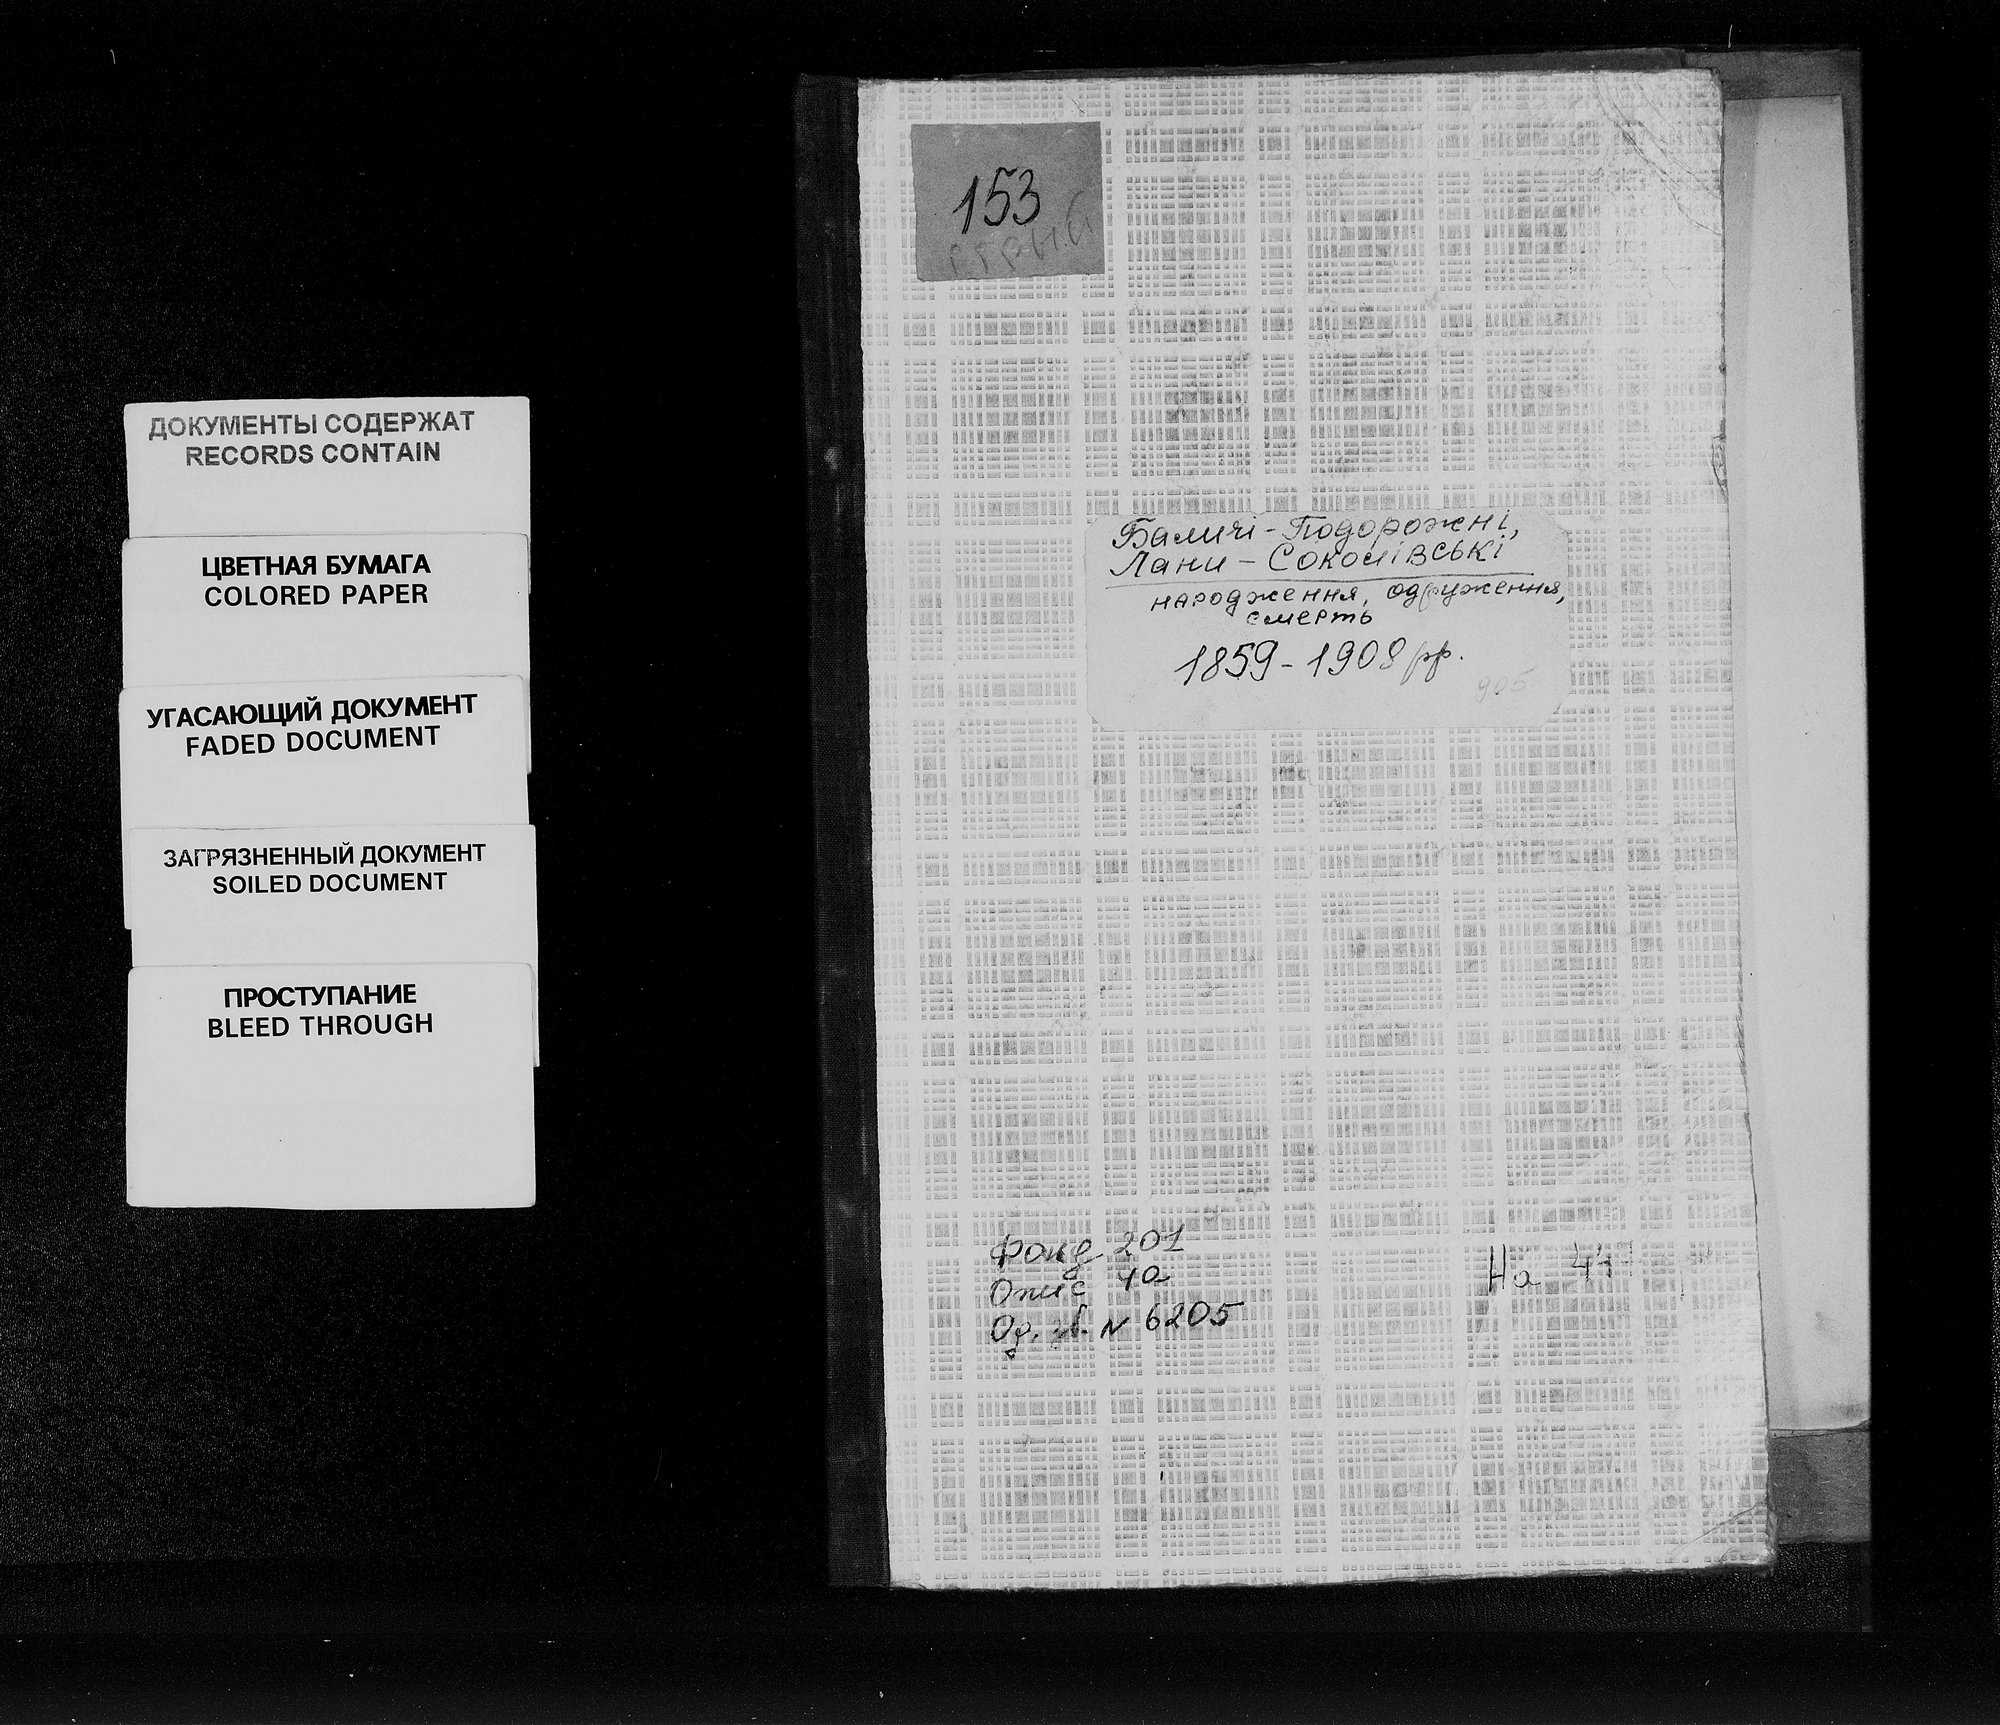 ДОКУМЕНТЫ СОДЕРЖАТ
RECORDS CONTAIN
ЦВЕТНАЯ БУМАГА
COLORED PAPER
УГАСАЮЩИЙ ДОКУМЕНТ
FADED DOCUMENT
ЗАГРЯЗНЕННЫЙ ДОКУМЕНТ
SOILED DOCUMENT
ПРОСТУПАНИЕ
BLEED THROUGH
153
Баличі-Подорожні,
Лани-Соколівські
народження, одруження,
смерть
1859-1908 рр.
905
Фонд 201
Опис 4а
Од. зб. N 6205
На